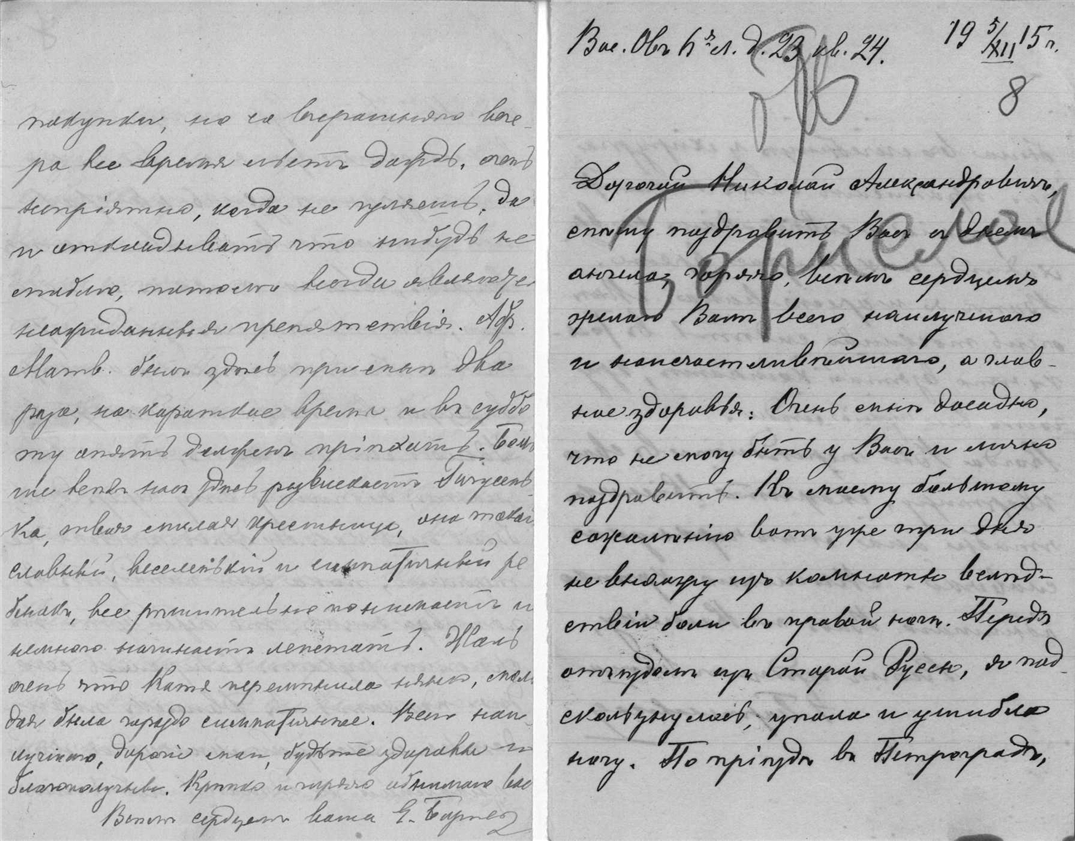 покупки, но со вчерашняго вече-
ра все время льетъ дождь. очень
непріятно, когда не гуляешь. Да
и откладывать что нибудь не
люблю, потомъ всегда являются
неожиданныя препятствія. Аф.
Матв. былъ здѣсь при мнѣ два
раза, на короткое время и въ суббо
ту опять долженъ пріѣхать. Боль
ше всѣхъ насъ здѣсь развлекаетъ
ка, твоя милая крестница, она такой
славный, веселенькій и симпатичный ре
бенокъ, все рѣшительно понимаетъ и
немного начинаетъ лепетать. Жаль
очень что Катя перемѣнила няню,
дая была гораздо симпатичнѣе. Всего наи
лучшаго, дорогіе мои, будьте здоровы и
благополучны. Крѣпко и горячо обнимаю вас
Всѣмъ сердцемъ ваша Е.
Вас. Овъ 6я л. д. 23 кв. 24. 19 5/XII 15 г.
8
Дорогой Николай Александровичъ,
спѣшу поздравить Васъ съ днемъ
ангела, горячо, всѣмъ сердцемъ
желаю Вамъ всего наилучшаго
и наисчастливѣйшаго, а глав-
ное здоровья. Очень мнѣ досадно,
что не могу быть у Васъ и лично
поздравить. Къ моему большому
сожалѣнію вотъ уже три дня
не выхожу изъ комнаты вслѣд-
ствіи боли въ правой ногѣ. Передъ
отъѣздомъ изъ Старой Руссы, я под
скользнулась, упала и ушибла
ногу. По пріѣздѣ въ Петроградъ,